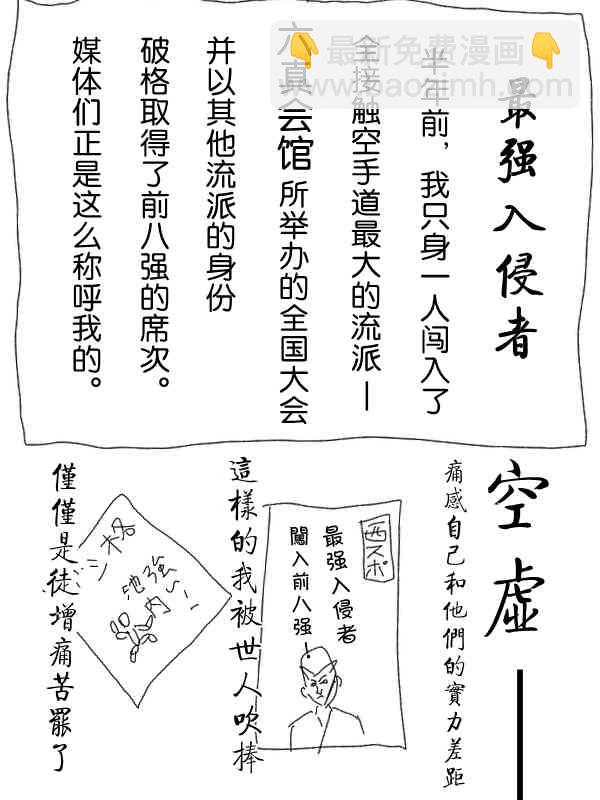 最新免费漫画
www.baozimh.com
最强入侵者
半年前，我只身一人闯入了
全接触空手道最大的流派—
六真会馆所举办的全国大会
并以其他流派的身份
破格取得了前八强的席次。
媒体们正是这么称呼我的。
空虛—
痛感自己和他們的實力差距
西スポ
最强入侵者
闖入前八强！
這樣的我被世人吹捧
僅僅是徒增痛苦罷了